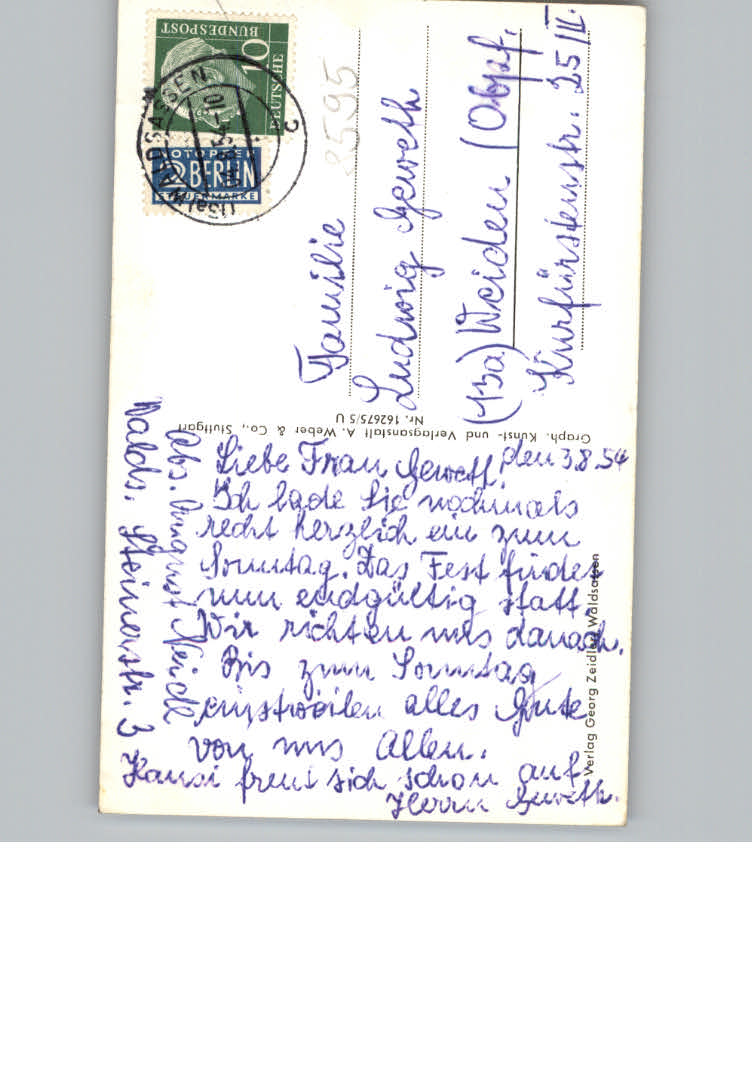 DEUTSCHE
BUNDESPOST
10
NOTOPFER
2 BERLIN
STEUERMARKE
WALDSASSEN
c
8595
Familie
Ludwig Geweth
(13a) Weiden / Obpf.
Kurfürstenstr. 25/II.
Graph. Kunst- und Verlagsanstalt A. Weber & Co., Stuttgart
Nr. 162675/5 U
Verlag Georg Zeidler, Waldsassen
Abs. August
Walds. Steinerstr. 3
den 3.8.54
Liebe Frau Geweth,
Ich lade Sie nochmals
recht herzlich ein zum
Sonntag. Das Fest findet
nun endgültig statt.
Wir richten uns danach.
Bis zum Sonntag
einstweilen alles Gute
von uns Allen.
Hansi freut sich schon auf
Herrn Geweth.